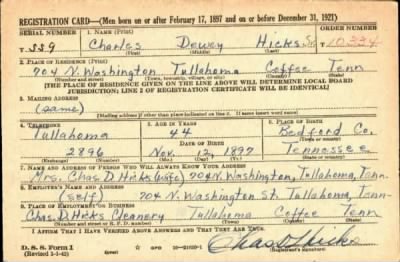 REGISTRATION CARD—(Men born on or after February 17, 1897 and on or before December 31, 1921)
SERIAL NUMBER 1. NAME (Print) ORDER NUMBER
S 559 Charles Dewey Hicks Jr. 10334
(First) (Middle) (Last)
2. PLACE OF RESIDENCE (Print)
704 N. Washington Tullahoma Coffee Tenn
(Number and street) (Town, township, village, or city) (County) (State)
[THE PLACE OF RESIDENCE GIVEN ON THE LINE ABOVE WILL DETERMINE LOCAL BOARD
JURISDICTION; LINE 2 OF REGISTRATION CERTIFICATE WILL BE IDENTICAL]
3. MAILING ADDRESS
(Same)
[Mailing address if other than place indicated on line 2. If same insert word same]
4. TELEPHONE 5. AGE IN YEARS 6. PLACE OF BIRTH
Tullahoma 44 Bedford Co.
DATE OF BIRTH (Town or county)
2896 Nov. 12, 1897 Tennessee
(Exchange) (Number) (Mo.) (Day) (Yr.) (State or country)
7. NAME AND ADDRESS OF PERSON WHO WILL ALWAYS KNOW YOUR ADDRESS
Mrs. Chas. D. Hicks (wife) 704 N. Washington, Tullahoma, Tenn.
8. EMPLOYER'S NAME AND ADDRESS
(self) 704 N. Washington St. Tullahoma, Tenn.
9. PLACE OF EMPLOYMENT OR BUSINESS
Chas. D. Hicks Cleanery Tullahoma Coffee Tenn
(Number and street or R. F. D. number) (Town) (County) (State)
I AFFIRM THAT I HAVE VERIFIED ABOVE ANSWERS AND THAT THEY ARE TRUE.
D. S. S. Form 1 GPO 16—21630-1 Chas D Hicks
(Registrant's signature)